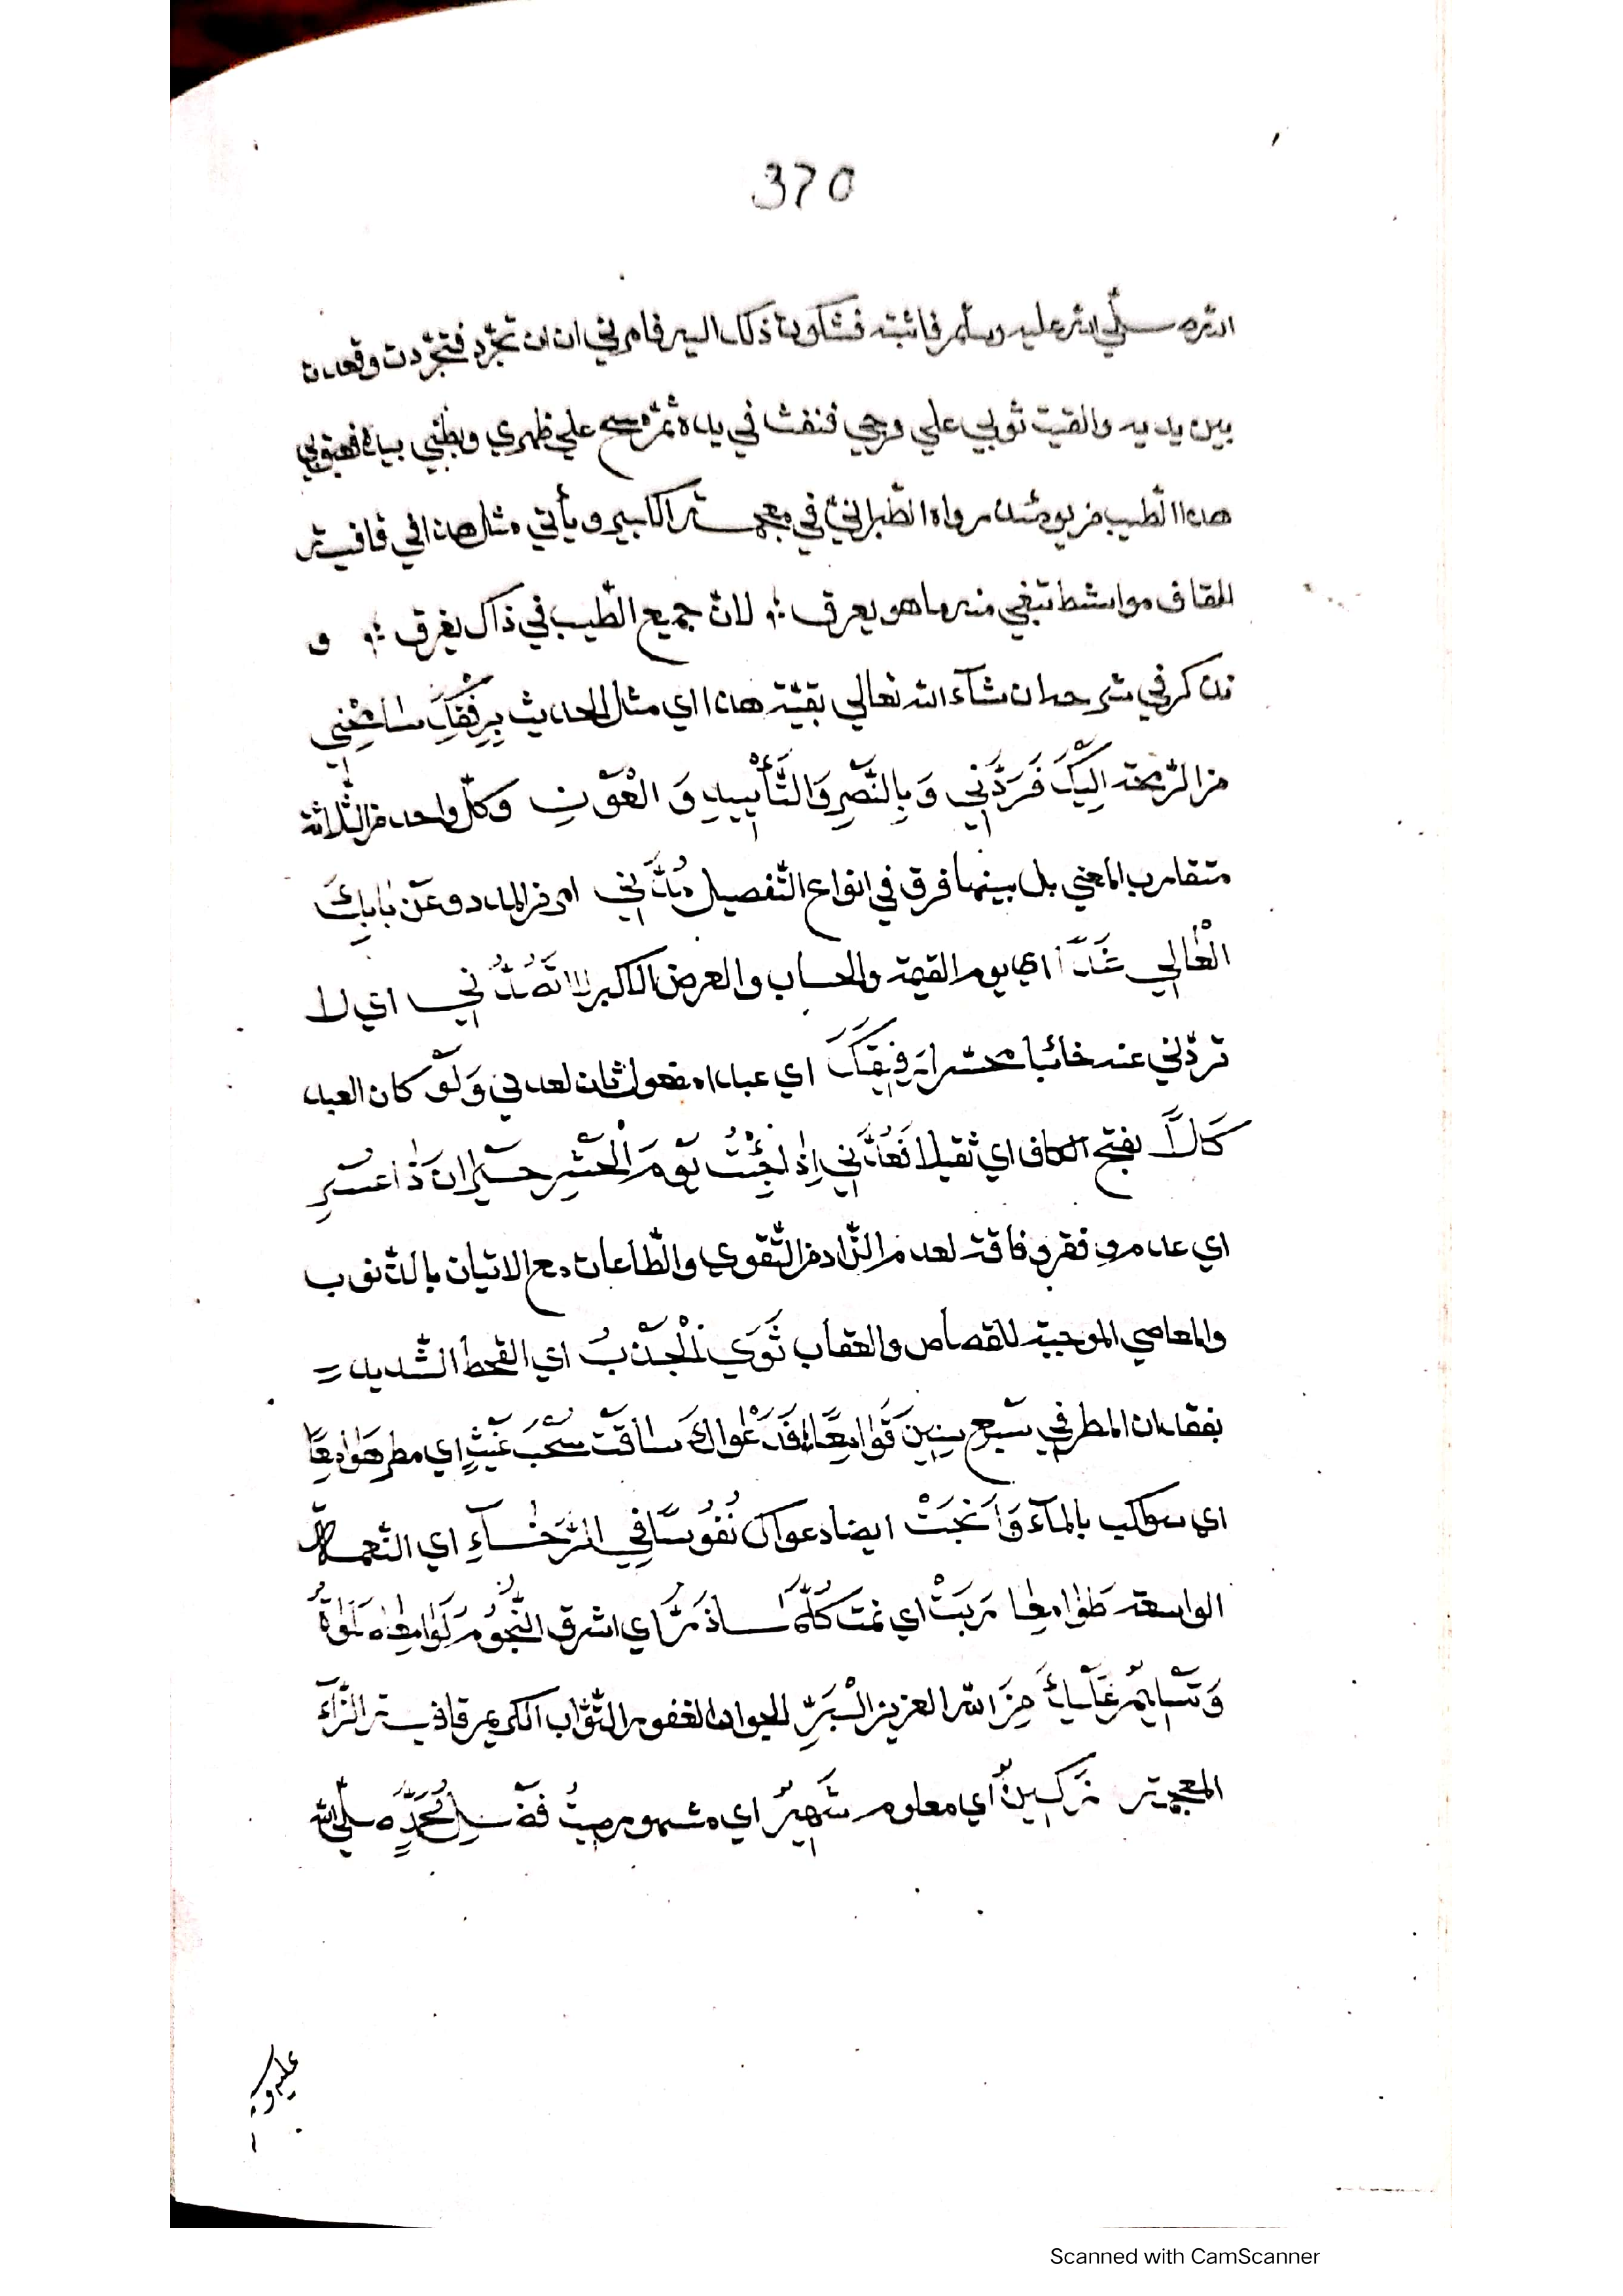 370
الله صلي الله عليه وسلم فاتيته فشكوت ذلك اليه فامرني ان اتجرد فتجردت وقعدت
بين يديه والقيت ثوبي علي فرجي فنفث في يده ثم مسح علي ظهري وبطني بيده فعبق بي
هذا الطيب من يومئذ رواه الطبراني في معجمه الكبير ويأتي مثل هذا في قافية
القاف مواشط تبغي منه ما هو يعرق ؛ لان جميع الطيب في ذاك يغرق ؛ و
نذكر في شرحه ان شآء الله تعالي بقية هذا اي مثل الحديث بِرِفْقِكَ سامِحْنِي
من الرحمة اِلَيْكَ فَرَدَّنِي وَبِالنَّصْرِ وَالتَّأْيِيدِ وَ الْعَوْنِ وكل واحد من الثلاثة
متقارب المعني بل بينهما فرق في انواع التفصيل مُدَّنِي امر من المدد وعَنْ بابِكَ
الْعالِي غَدًا اي يوم القيمة والحساب والعرض الاكبر لا تَصُدَّنِي اي لا
تردني عنه خائبا محسرا رَفِيقَكَ اي عبدا مفعول ثان لعدني وَلَوْ كان العبد
كَلًّا بفتح الكاف اي ثقيلا فَعُدَّنِي اِذا جِئْتُ يَوْمَ الْحَشْرِ حَيْرانَ ذا عُسْرِ
اي عدم وفقر وفاقة لعدم الزاد من التقوي والطاعات مع الاتيان بالذنوب
والمعاصي الموجبة للقصاص والعقاب ثَوَي الْجَدْبُ اي القحط الشديد
بفقدان المطر في سَبْعِ سِنِينَ قَوامِعًا فَدَعْواكَ ساقَتْ سُحْبَ غَيْثٍ اي مطر هَوامِعًا
اي سواكب بالمآء وَاَنْجَتْ ايضا دعواك نُفُوسًا فِي الرَّخآءِ اي النعم
الواسعة طَوامِعا رَبَتْ اي نمت كُلَّما ذَرَّ اي اشرق النُّجُومُ لَوامِعا صَلَوٰةٌ
وَتَسْلِيمٌ عَلَيْكَ مِنَ الله العزيز الْبَرِّ الجواد الغفور التواب الكريم قافية الزآء
المعجمة زَكِينٌ اي معلوم شَهِيرٌ اي مشهور صِيتُ فَضْلِ مُحَمَّدٍ صلي الله
عليه و
Scanned with CamScanner